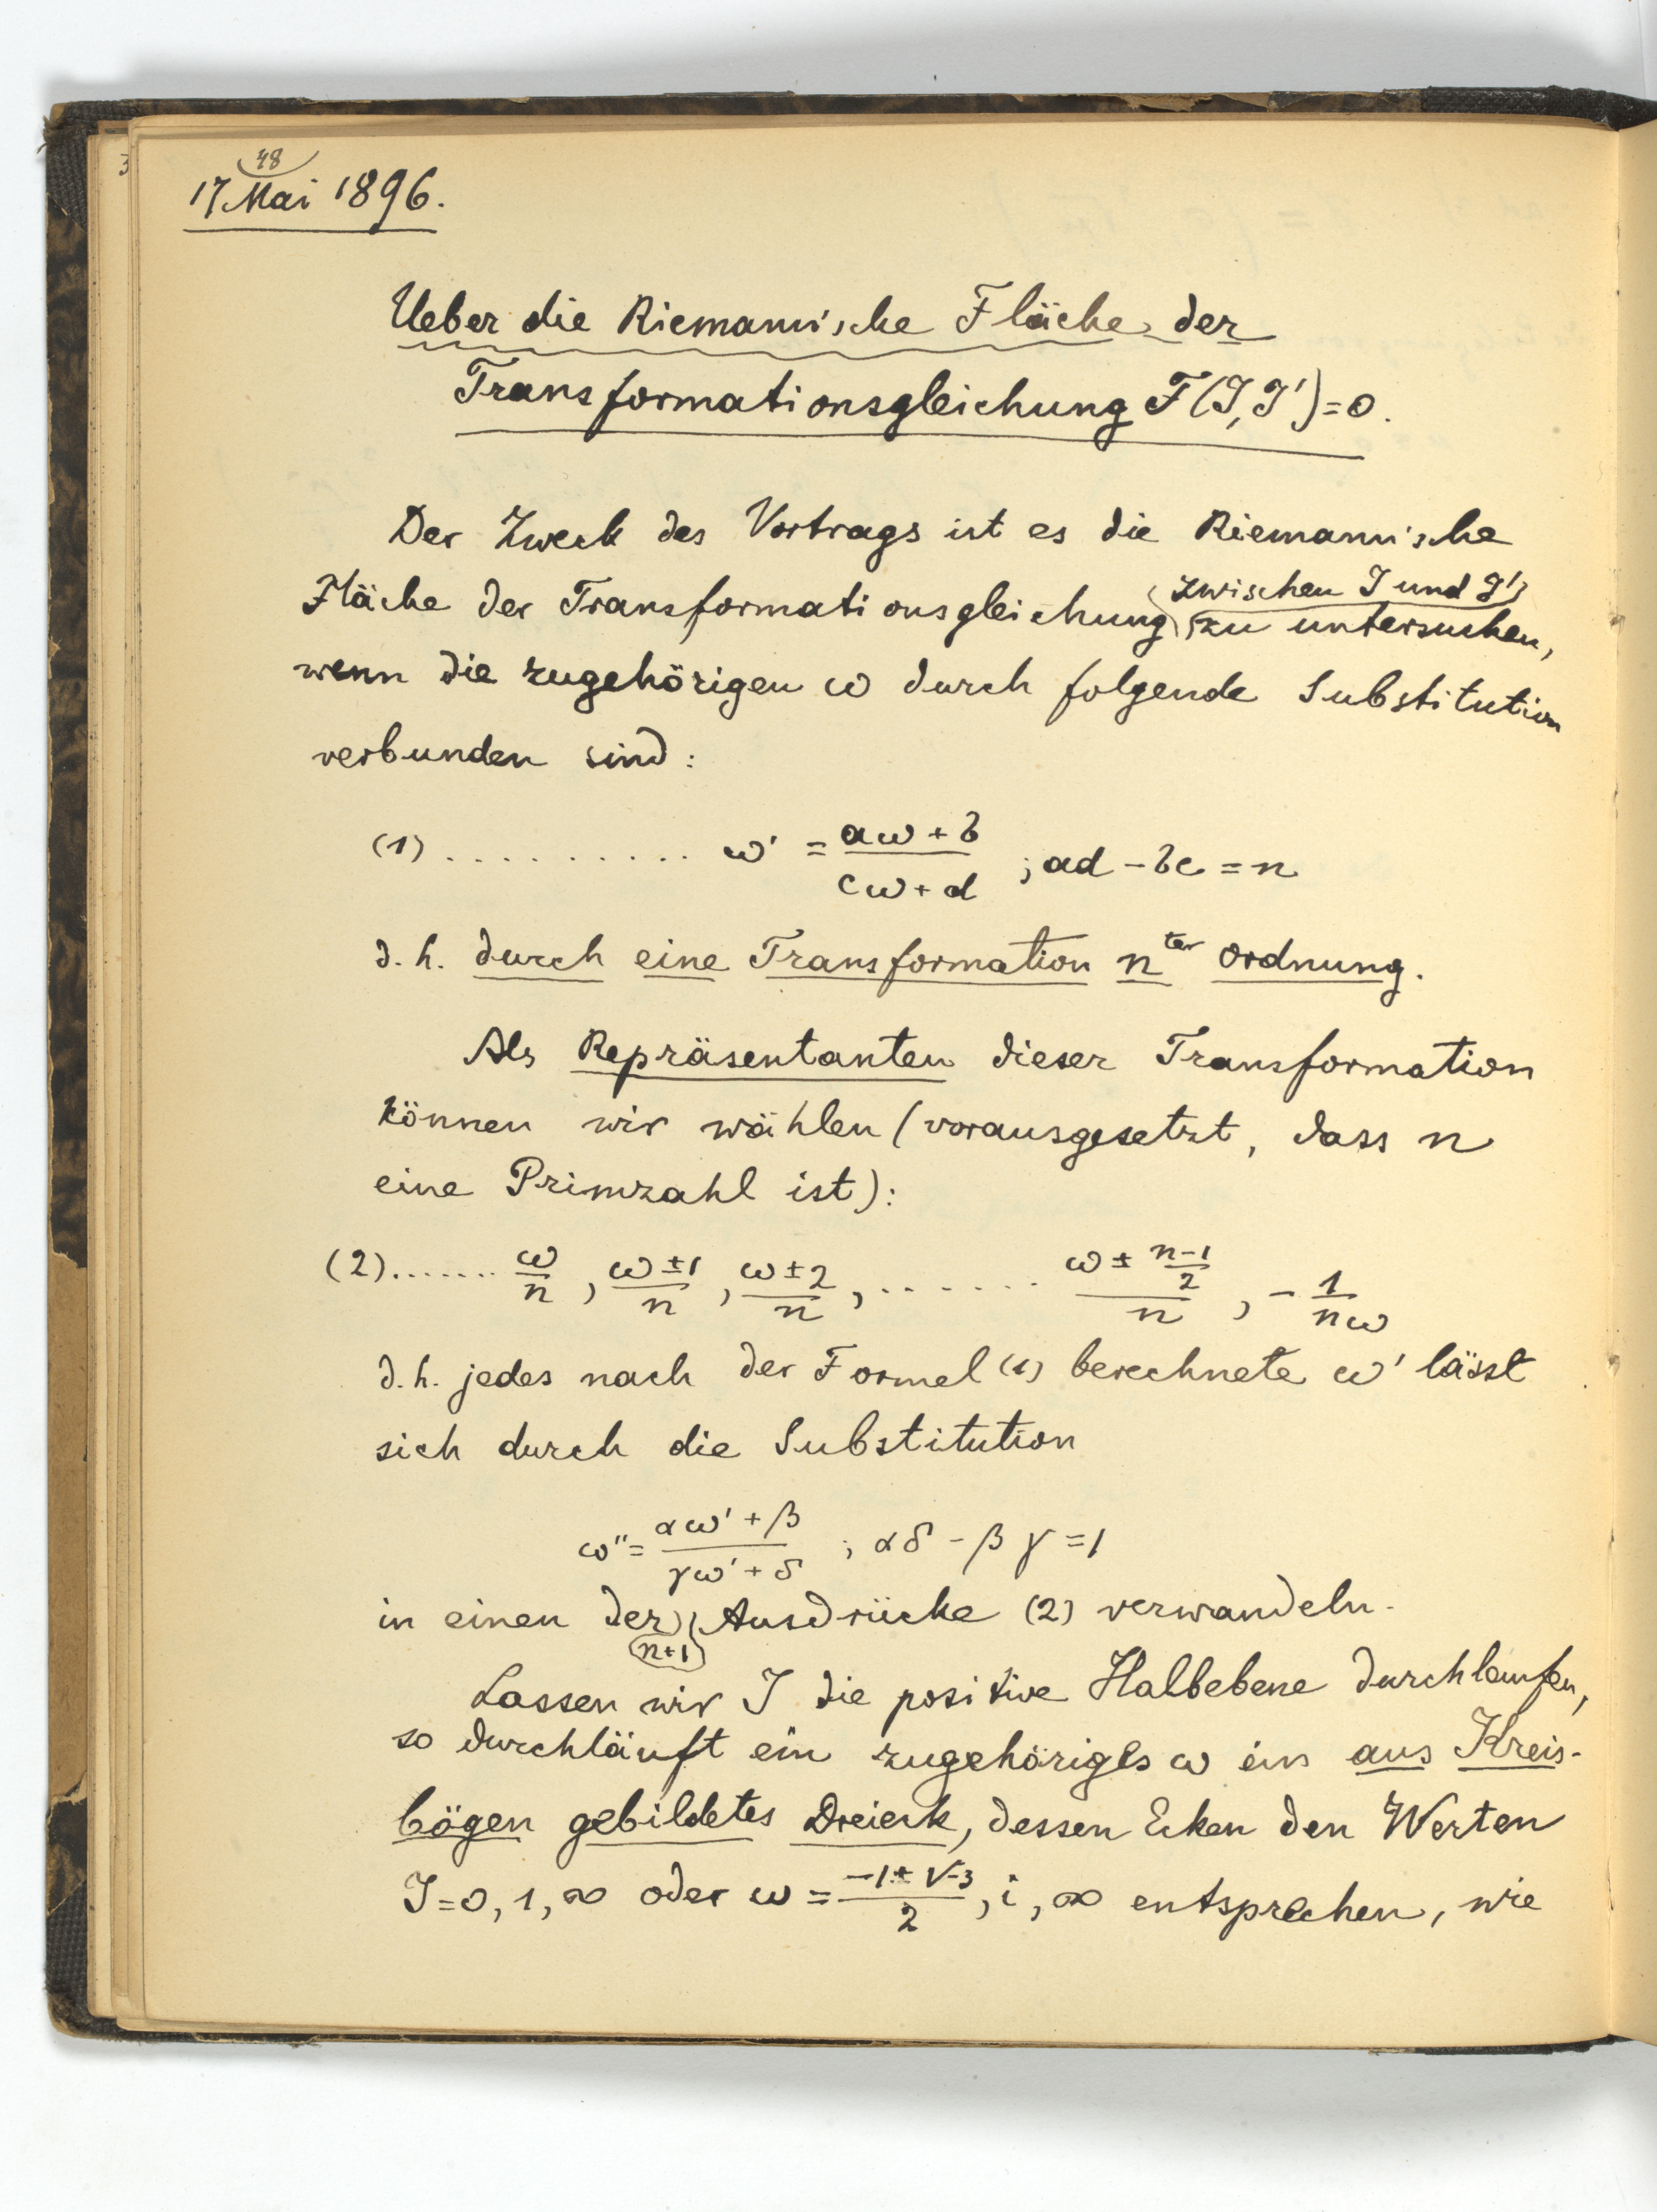 48
17 Mai 1896.
Ueber die Riemannische Fläche der
Transformationsgleichung F(J,J')=0.
Der Zweck des Vortrags ist es die Riemannische
Fläche der Transformationsgleichung zwischen J und J' zu untersuchen,
wenn die zugehörigen ω durch folgende Substitution
verbunden sind:
(1) .......... ω' = (aω + b)/(cω + d) ; ad - bc = n
d. h. durch eine Transformation n^ter Ordnung.
Als Repräsentanten dieser Transformation
können wir wählen (vorausgesetzt, dass n
eine Primzahl ist):
(2)....... ω/n, (ω±1)/n, (ω±2)/n, ....... (ω ± (n-1)/2)/n, - 1/(nω)
d. h. jedes nach der Formel (1) berechnete ω' lässt
sich durch die Substitution
ω'' = (αω' + β)/(γω' + δ) ; αδ - βγ = 1
in einen der (n+1) Ausdrücke (2) verwandeln.
Lassen wir J die positive Halbebene durchlaufen,
so durchläuft ein zugehöriges ω ein aus Kreis-
bögen gebildetes Dreieck, dessen Ecken den Werten
J=0, 1, ∞ oder ω = (-1 ± √-3)/2, i, ∞ entsprechen, wie